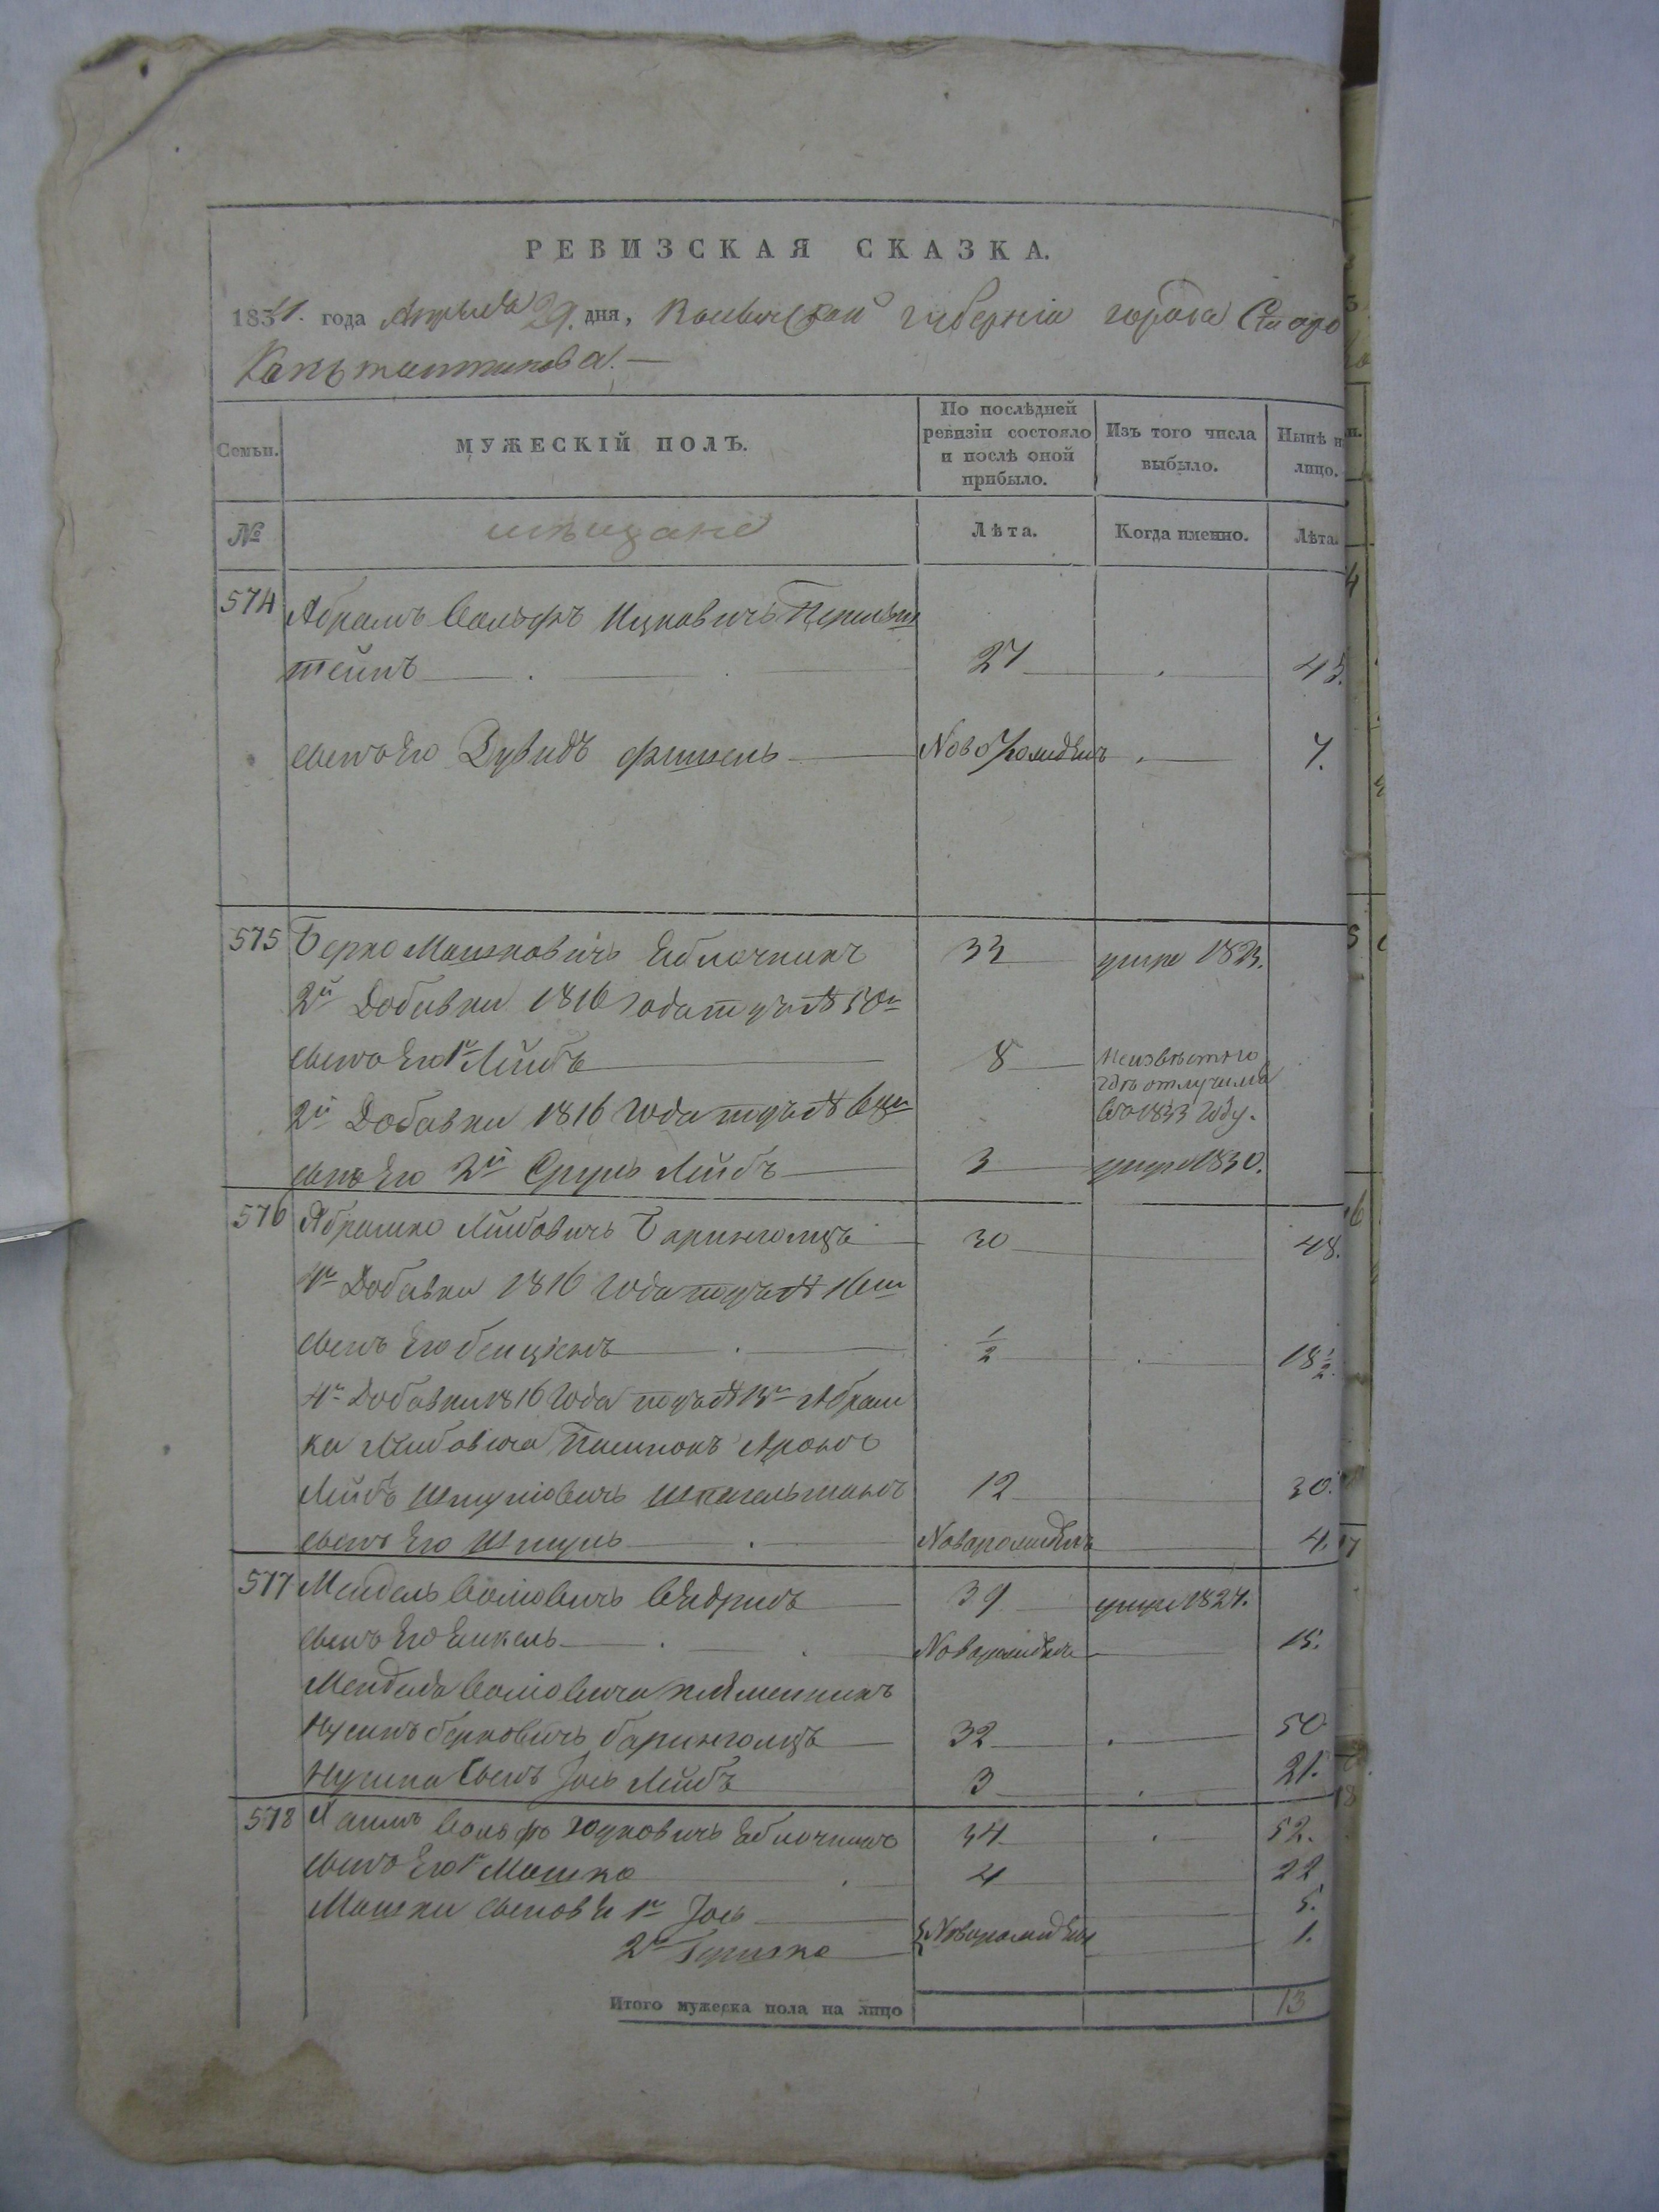 РЕВИЗСКАЯ СКАЗКА.
183 года Апрѣля 29. дня, Волынской губерніи города Старо
Константинова. —
Семьи.
МУЖЕСКІЙ ПОЛЪ.
По послѣдней ревизіи состояло и послѣ оной прибыло.
Изъ того числа выбыло.
Нынѣ н
лицо.
№
мѣщане
Лѣта.
Когда именно.
Лѣта.
574 Абрамъ Вольфъ Ицковичъ Перельш
тейнъ 27 45.
сынъ Его Дувидъ Фишель Новорожденъ 7.
575 Берко Мошковичъ Яблочникъ 33 умре 1823.
2й Добавки 1816 Года подъ №
сынъ Его 1й Лейбъ 8 Неизвѣстно
гдѣ отлучился
въ 1833 Году.
2й Добавки 1816 Года подъ №
сынъ Его 2й Сруль Лейбъ 3 умре 1830.
576 Абрамко Лейбовичъ Барингольцъ 30 48.
Добавки 1816 Года подъ №
сынъ Его Бенціенъ ½ 18½.
4й Добавки 1816 Года подъ № Абраш
ки Лейбовича Аронъ
Лейбъ Шмулювичъ 12 30.
сынъ Его Шмуль Новорожденъ 4.
577 Мендель Волювичъ 39 умре 1827.
сынъ Его Новорожденъ 15.
Менделя Волювича племянникъ
Нусинъ Берковичъ Барингольцъ 32 50
Нусина сынъ Іось Лейбъ 3 21.
578 Хаимъ Вольфъ Юдковичъ Яблочникъ 34 52.
сынъ Его 1й Мошко 4 22
Мошки сыновья 1й Іось 5.
2й Новорожденны 1.
Итого мужеска пола на лицо 13